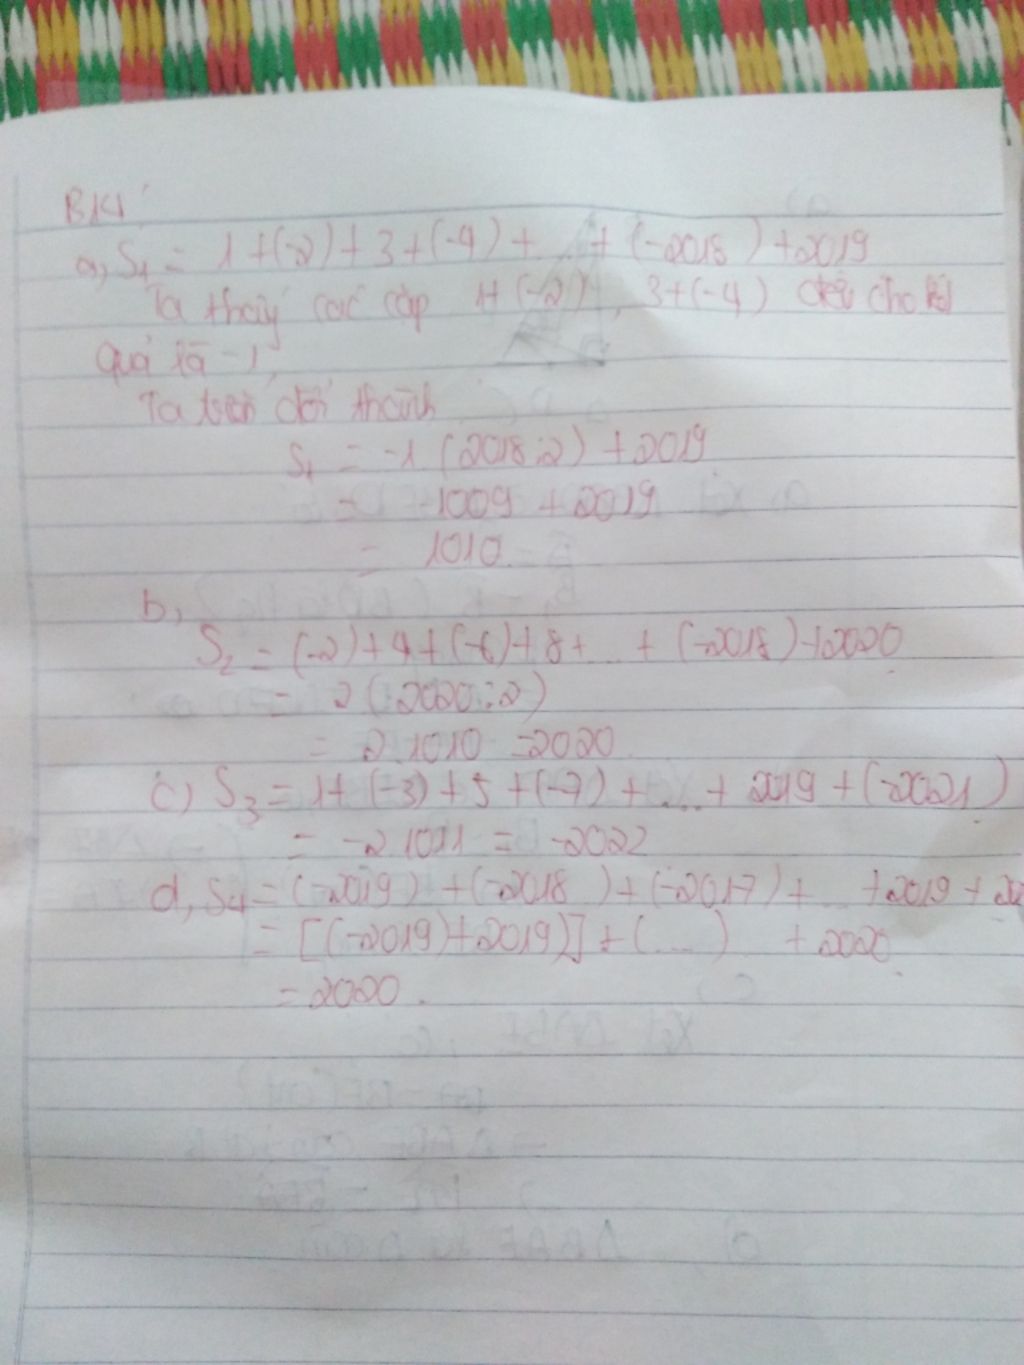 a, S1 = 1 + (-2) + 3 + (-4) + ... + (-2018) + 2019
Ta thấy các cặp 1 + (-2), 3 + (-4) đều cho kết
quả là -1,
Ta biến đổi thành
S1 = -1 (2018:2) + 2019
= -1009 + 2019
= 1010.
b,
S2 = (-2) + 4 + (-6) + 8 + ... + (-2018) + 2020
= 2 (2020:2)
= 2.1010 = 2020
c) S3 = 1 + (-3) + 5 + (-7) + ... + 2019 + (-2021)
= -2.1011 = -2022
d, S4 = (-2019) + (-2018) + (-2017) + ... + 2019 +
= [(-2019) + 2019)] + (...) + 2020
= 2020.